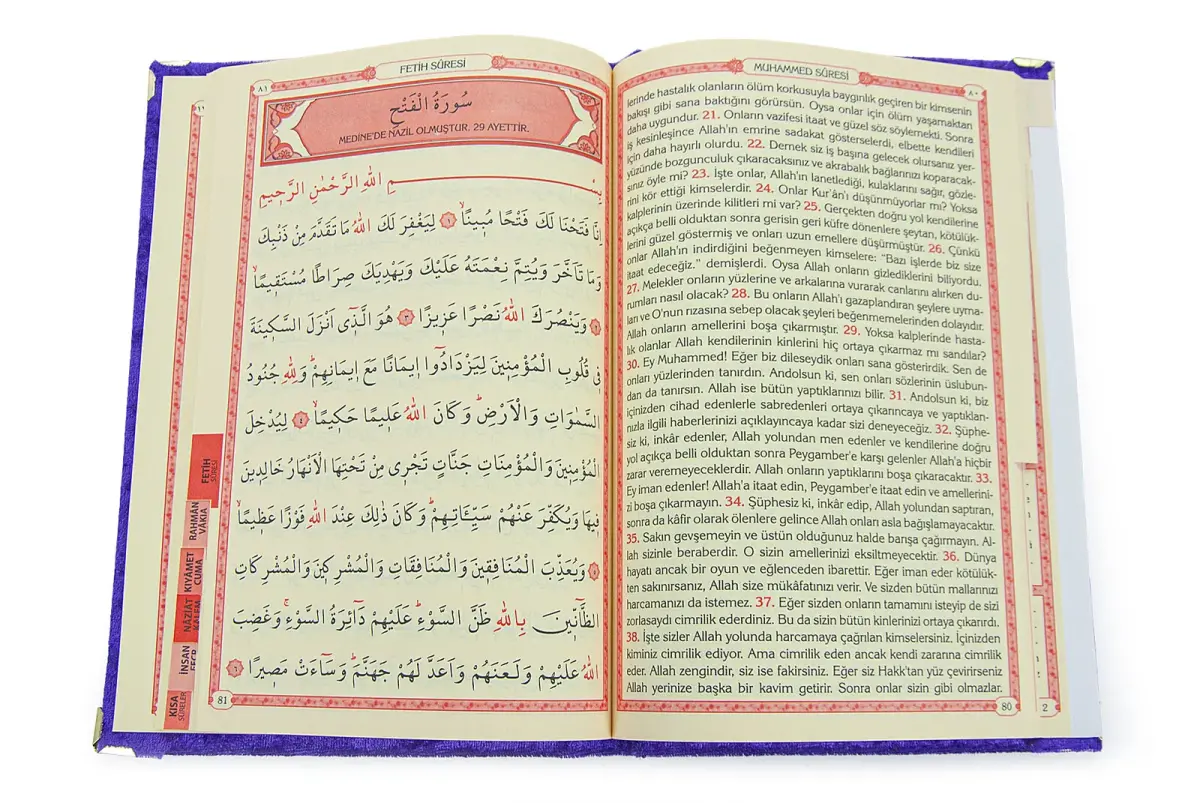 MUHAMMED SÛRESİ
٨٠
lerinde hastalık olanların ölüm korkusuyla baygınlık geçiren bir kimsenin
bakışı gibi sana baktığını görürsün. Oysa onlar için ölüm yaşamaktan
daha uygundur. 21. Onların vazifesi itaat ve güzel söz söylemekti. Sonra
iş kesinleşince Allah'ın emrine sadakat gösterselerdi, elbette kendileri
için daha hayırlı olurdu. 22. Demek siz iş başına gelecek olursanız yer-
yüzünde bozgunculuk çıkaracaksınız ve akrabalık bağlarınızı koparacak-
sınız öyle mi? 23. İşte onlar, Allah'ın lanetlediği, kulaklarını sağır, gözle-
rini kör ettiği kimselerdir. 24. Onlar Kur'ân'ı düşünmüyorlar mı? Yoksa
kalplerinin üzerinde kilitleri mi var? 25. Gerçekten doğru yol kendilerine
açıkça belli olduktan sonra gerisin geri küfre dönenlere şeytan, kötülük-
lerini güzel göstermiş ve onları uzun emellere düşürmüştür. 26. Çünkü
onlar Allah'ın indirdiğini beğenmeyen kimselere: “Bazı işlerde biz size
itaat edeceğiz.” demişlerdi. Oysa Allah onların gizlediklerini biliyordu.
27. Melekler onların yüzlerine ve arkalarına vurarak canlarını alırken du-
rumları nasıl olacak? 28. Bu onların Allah'ı gazaplandıran şeylere uyma-
ları ve O'nun rızasına sebep olacak şeyleri beğenmemelerinden dolayıdır.
Allah onların amellerini boşa çıkarmıştır. 29. Yoksa kalplerinde hasta-
lık olanlar Allah kendilerinin kinlerini hiç ortaya çıkarmaz mı sandılar?
30. Ey Muhammed! Eğer biz dileseydik onları sana gösterirdik. Sen de
onları yüzlerinden tanırdın. Andolsun ki, sen onları sözlerinin üslubun-
dan da tanırsın. Allah ise bütün yaptıklarınızı bilir. 31. Andolsun ki, biz
içinizden cihad edenlerle sabredenleri ortaya çıkarıncaya ve yaptıkları-
nızla ilgili haberlerinizi açıklayıncaya kadar sizi deneyeceğiz. 32. Şüphe-
siz ki, inkâr edenler, Allah yolundan men edenler ve kendilerine doğru
yol açıkça belli olduktan sonra Peygamber'e karşı gelenler Allah'a hiçbir
zarar veremeyeceklerdir. Allah onların yaptıklarını boşa çıkaracaktır. 33.
Ey iman edenler! Allah'a itaat edin, Peygamber'e itaat edin ve amellerini-
zi boşa çıkarmayın. 34. Şüphesiz ki, inkâr edip, Allah yolundan saptıran,
sonra da kâfir olarak ölenlere gelince Allah onları asla bağışlamayacaktır.
35. Sakın gevşemeyin ve üstün olduğunuz halde barışa çağırmayın. Al-
lah sizinle beraberdir. O sizin amellerinizi eksiltmeyecektir. 36. Dünya
hayatı ancak bir oyun ve eğlenceden ibarettir. Eğer iman eder kötülük-
ten sakınırsanız, Allah size mükâfatınızı verir. Ve sizden bütün mallarınızı
harcamanızı da istemez. 37. Eğer sizden onların tamamını isteyip de sizi
zorlasaydı cimrilik ederdiniz. Bu da sizin bütün kinlerinizi ortaya çıkarırdı.
38. İşte sizler Allah yolunda harcamaya çağrılan kimselersiniz. İçinizden
kiminiz cimrilik ediyor. Ama cimrilik eden ancak kendi zararına cimrilik
eder. Allah zengindir, siz ise fakirsiniz. Eğer siz Hakk'tan yüz çevirirseniz
Allah yerinize başka bir kavim getirir. Sonra onlar sizin gibi olmazlar.
80
2
FETİH SÛRESİ
٨١
سُورَةُ الْفَتْحِ
MEDİNE'DE NAZİL OLMUŞTUR. 29 AYETTİR.
بِسْمِ اللهِ الرَّحْمٰنِ الرَّحِيمِ
اِنَّا فَتَحْنَا لَكَ فَتْحًا مُبِينًاۙ ﴿١﴾ لِيَغْفِرَ لَكَ اللهُ مَا تَقَدَّمَ مِنْ ذَنْبِكَ
وَمَا تَاَخَّرَ وَيُتِمَّ نِعْمَتَهُ عَلَيْكَ وَيَهْدِيَكَ صِرَاطًا مُسْتَقِيمًاۙ
﴿٢﴾ وَيَنْصُرَكَ اللهُ نَصْرًا عَزِيزًا ﴿٣﴾ هُوَ الَّذِى اَنْزَلَ السَّكِينَةَ
فِى قُلُوبِ الْمُؤْمِنِينَ لِيَزْدَادُٓوا اِيمَانًا مَعَ اِيمَانِهِمْۜ وَلِلّٰهِ جُنُودُ
السَّمٰوَاتِ وَالْاَرْضِۜ وَكَانَ اللهُ عَلِيمًا حَكِيمًاۙ ﴿٤﴾ لِيُدْخِلَ
الْمُؤْمِنِينَ وَالْمُؤْمِنَاتِ جَنَّاتٍ تَجْرِى مِنْ تَحْتِهَا الْاَنْهَارُ خَالِدِينَ
فِيهَا وَيُكَفِّرَ عَنْهُمْ سَيِّـَٔاتِهِمْۜ وَكَانَ ذٰلِكَ عِنْدَ اللهِ فَوْزًا عَظِيمًاۙ
﴿٥﴾ وَيُعَذِّبَ الْمُنَافِقِينَ وَالْمُنَافِقَاتِ وَالْمُشْرِكِينَ وَالْمُشْرِكَاتِ
الظَّٓانِّينَ بِاللهِ ظَنَّ السَّوْءِۜ عَلَيْهِمْ دَٓائِرَةُ السَّوْءِۚ وَغَضِبَ
اللهُ عَلَيْهِمْ وَلَعَنَهُمْ وَاَعَدَّ لَهُمْ جَهَنَّمَۜ وَسَٓاءَتْ مَصِيرًا ﴿٦﴾
81
FETİH
SÛRESİ
RAHMÂN
VÂKIA
KIYÂMET
CUMA
NÂZİÂT
KALEM
İNSAN
FECR
KISA
SÛRELER